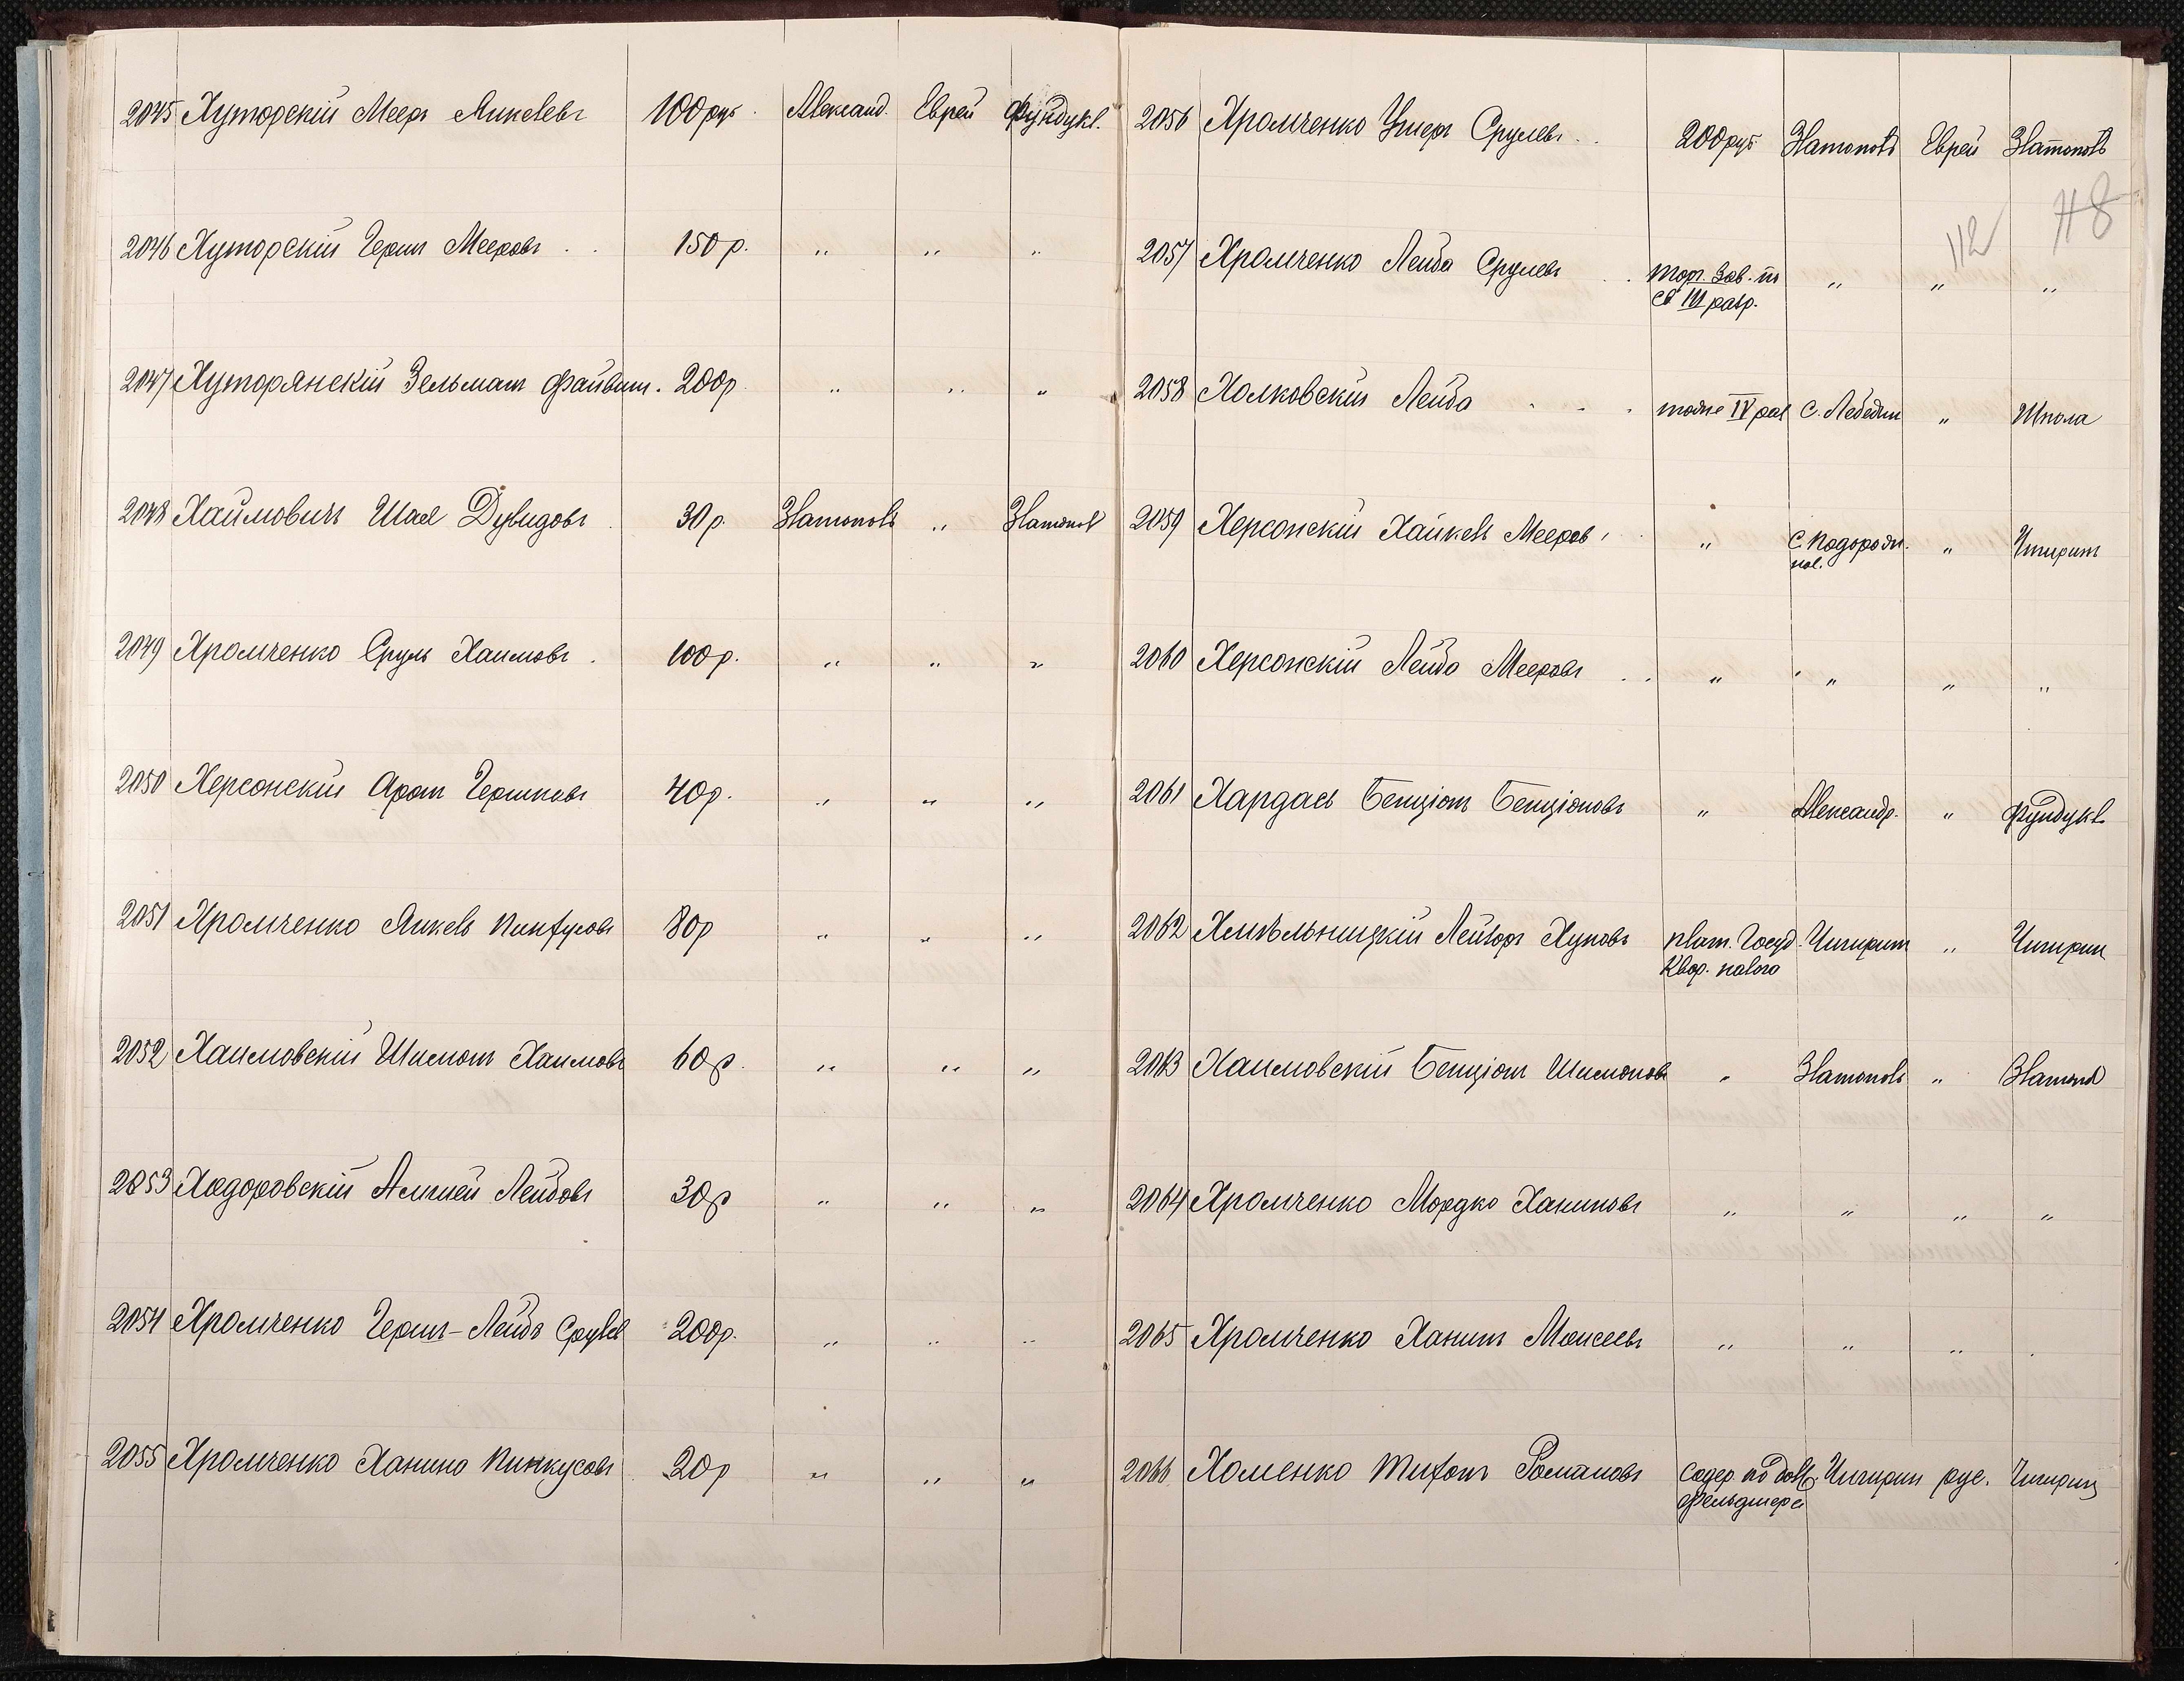 2045 Хуторскій Мееръ Янкелевъ 100 руб. Александ. Еврей Фундукл.
2046 Хуторскій Герш Мееровъ 150 р. " " "
2047 Хуторянскій Зельманъ Файвиш. 200 р. " " "
2048 Хаймовичъ Шая Дувидовъ 30 р. Златополь " Златопол
2049 Хромченко Сруль Хаимовъ 100 р. " " "
2050 Херсонскій Аронъ Гершковъ 40 р. " " "
2051 Хромченко Янкель Пинкусовъ 80 р " " "
2052 Хаимовскій Шимонъ Хаимовъ 60 р. " " "
2053 Ходоровскій Лейбовъ 30 р " " "
2054 Хромченко Герш-Лейбъ Срулев 200 р. " " "
2055 Хромченко Ханина Пинкусовъ 20 р " " "
2056 Хромченко Ушеръ Срулевъ 200 руб Златополь Еврей Златополь
112 118
2057 Хромченко Лейба Срулевъ Торг. зав. по " " "
св III разр.
2058 Холковскій Лейба тоже IV раз С. Лебедин " Шпола
2059 Херсонскій Хайкель Мееров. " С. Подорожн. " Чигиринъ
пол.
2060 Херсонскій Лейба Мееровъ " " " "
2061 Хардасъ Бенціонъ Бенціоновъ " Александр. " Фундукл.
2062 Хмѣльницкій Лейзоръ Хуновъ плат. Госуд. Чигиринъ " Чигирин
Квар. налога
2063 Хаимовскій Бенціонъ Шимонов " Златополь " Златопол
2064 Хромченко Мордко Ханиновъ " " " "
2065 Хромченко Ханинъ Моисеевъ " " " "
2066 Хоменко Романовъ Содер. по долж. Чигирин рус. Чигирин
фельдшера